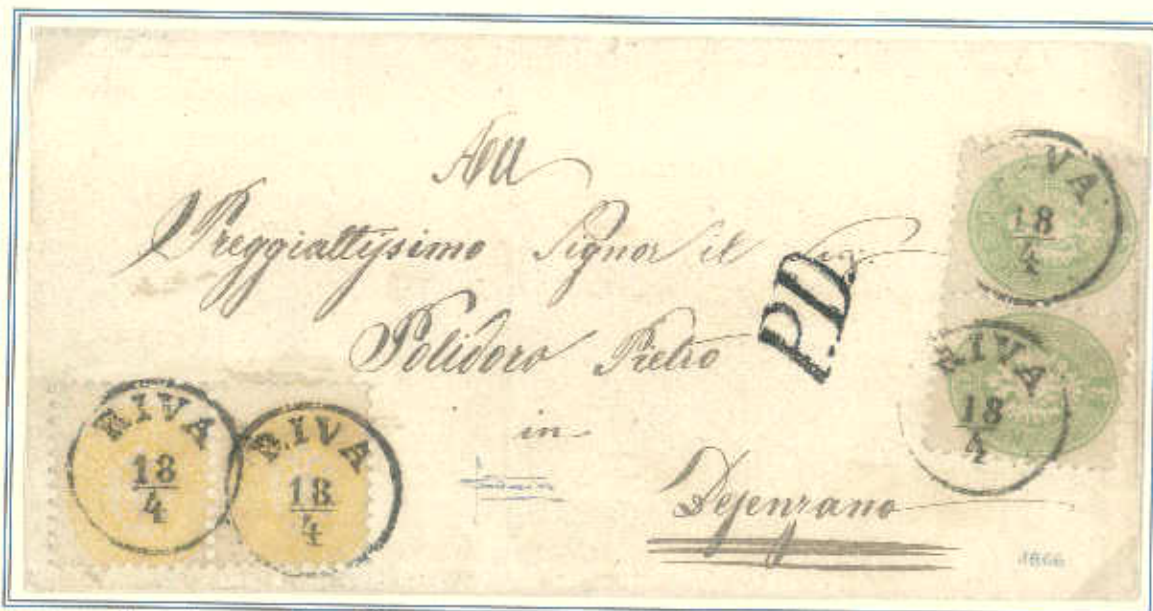 All
Preggiattissimo Signor il Sig.
Polidoro Pietro
in
Desenzano
P.D.
VA
18
4
RIVA
18
4
RIVA
18
4
RIVA
18
4
1866